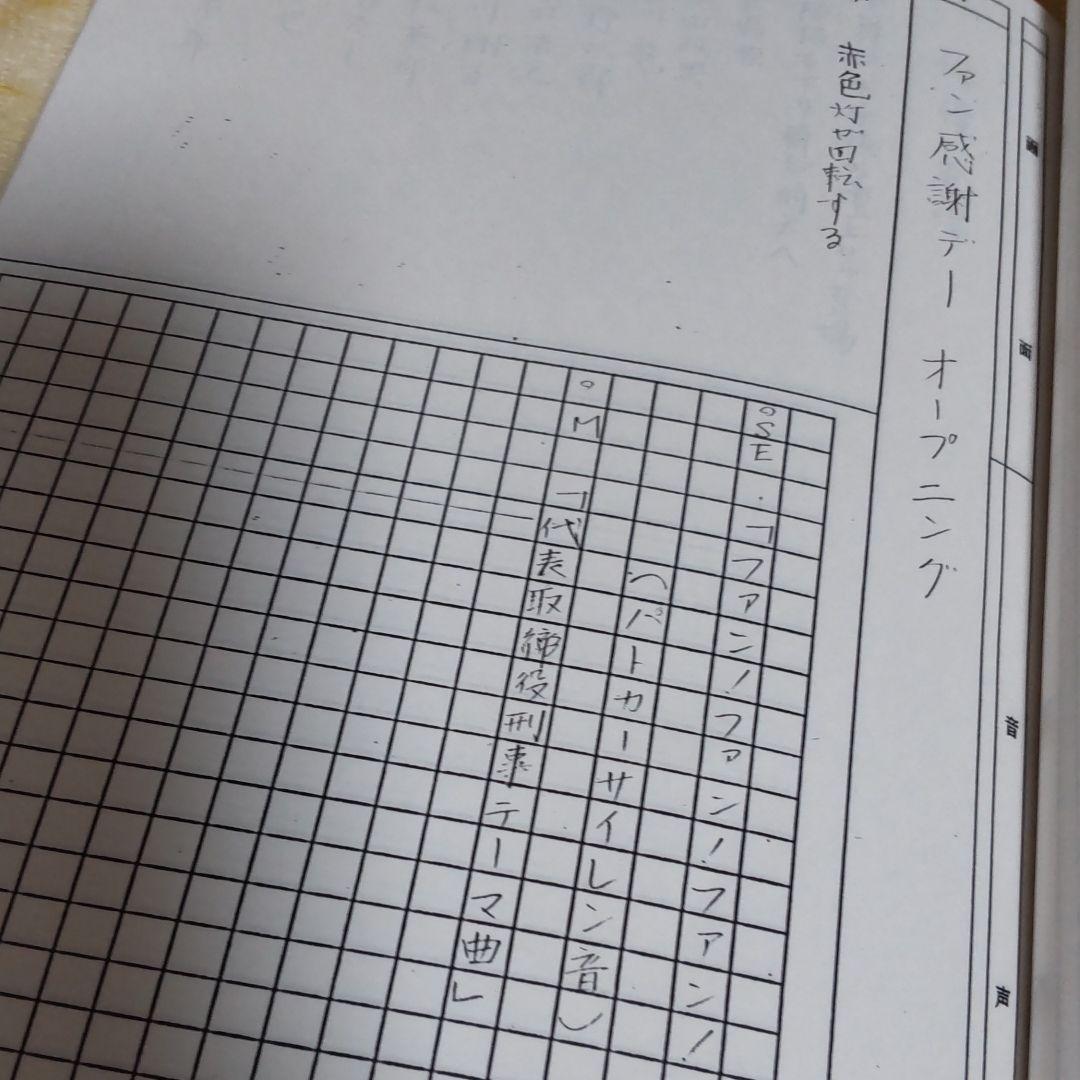 画面
音声
ファン感謝デー オープニング
赤色灯が回転する
○SE・「ファン!ファン!ファン!
（パトカーサイレン音）
○M 「代表取締役刑事テーマ曲」